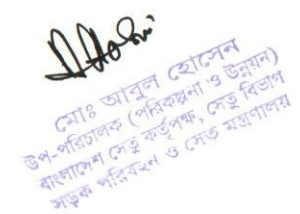 মোঃ আবুল হোসেন
উপ-পরিচালক (পরিকল্পনা ও উন্নয়ন)
বাংলাদেশ সেতু কর্তৃপক্ষ, সেতু বিভাগ
সড়ক পরিবহন ও সেতু মন্ত্রণালয়